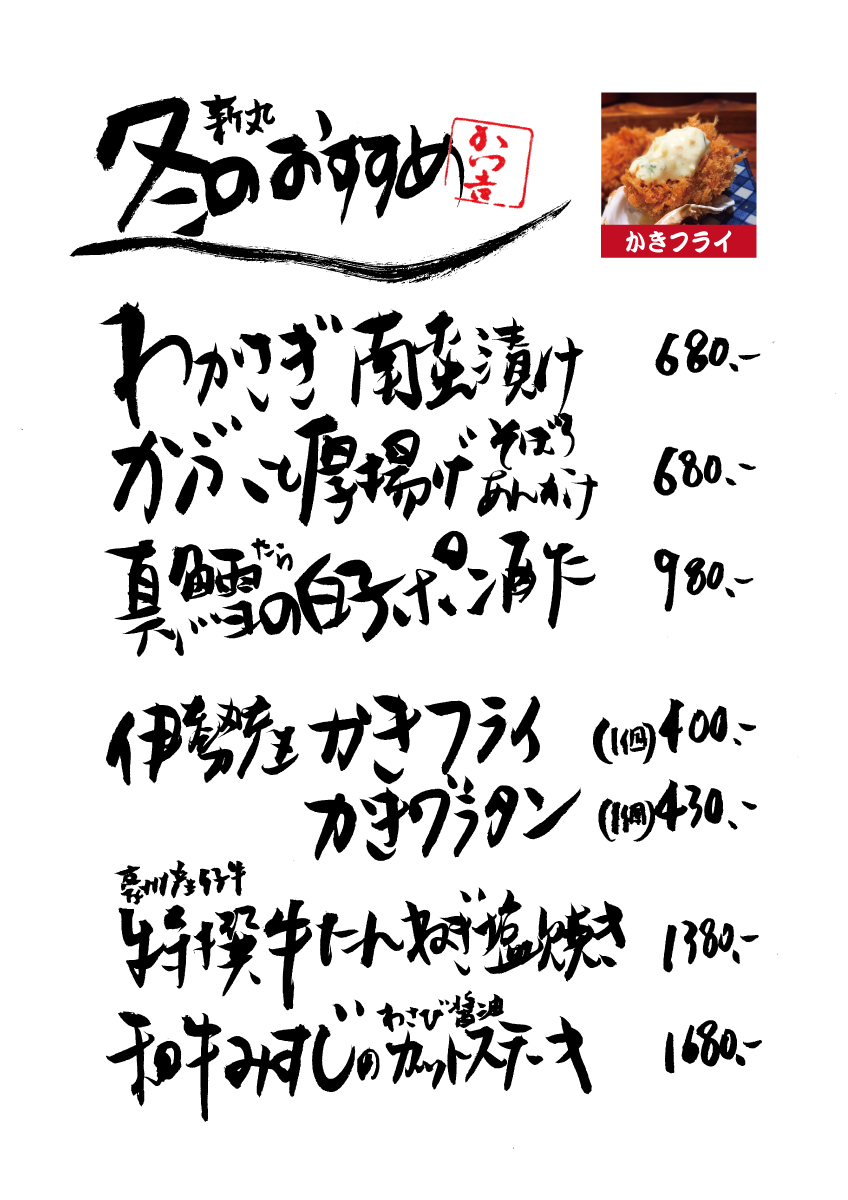 新丸
冬のおすすめ
かつ吉
かきフライ
わかさぎ南蛮漬け 680.-
かぶと厚揚げ そぼろあんかけ 680.-
真鱈の白子ポン酢 980.-
たら
伊勢産 かきフライ (1個) 400.-
かきグラタン (1個) 430.-
豪州産仔牛
特撰牛たんねぎ塩焼き 1380.-
わさび醤油
和牛みすじのカットステーキ 1680.-